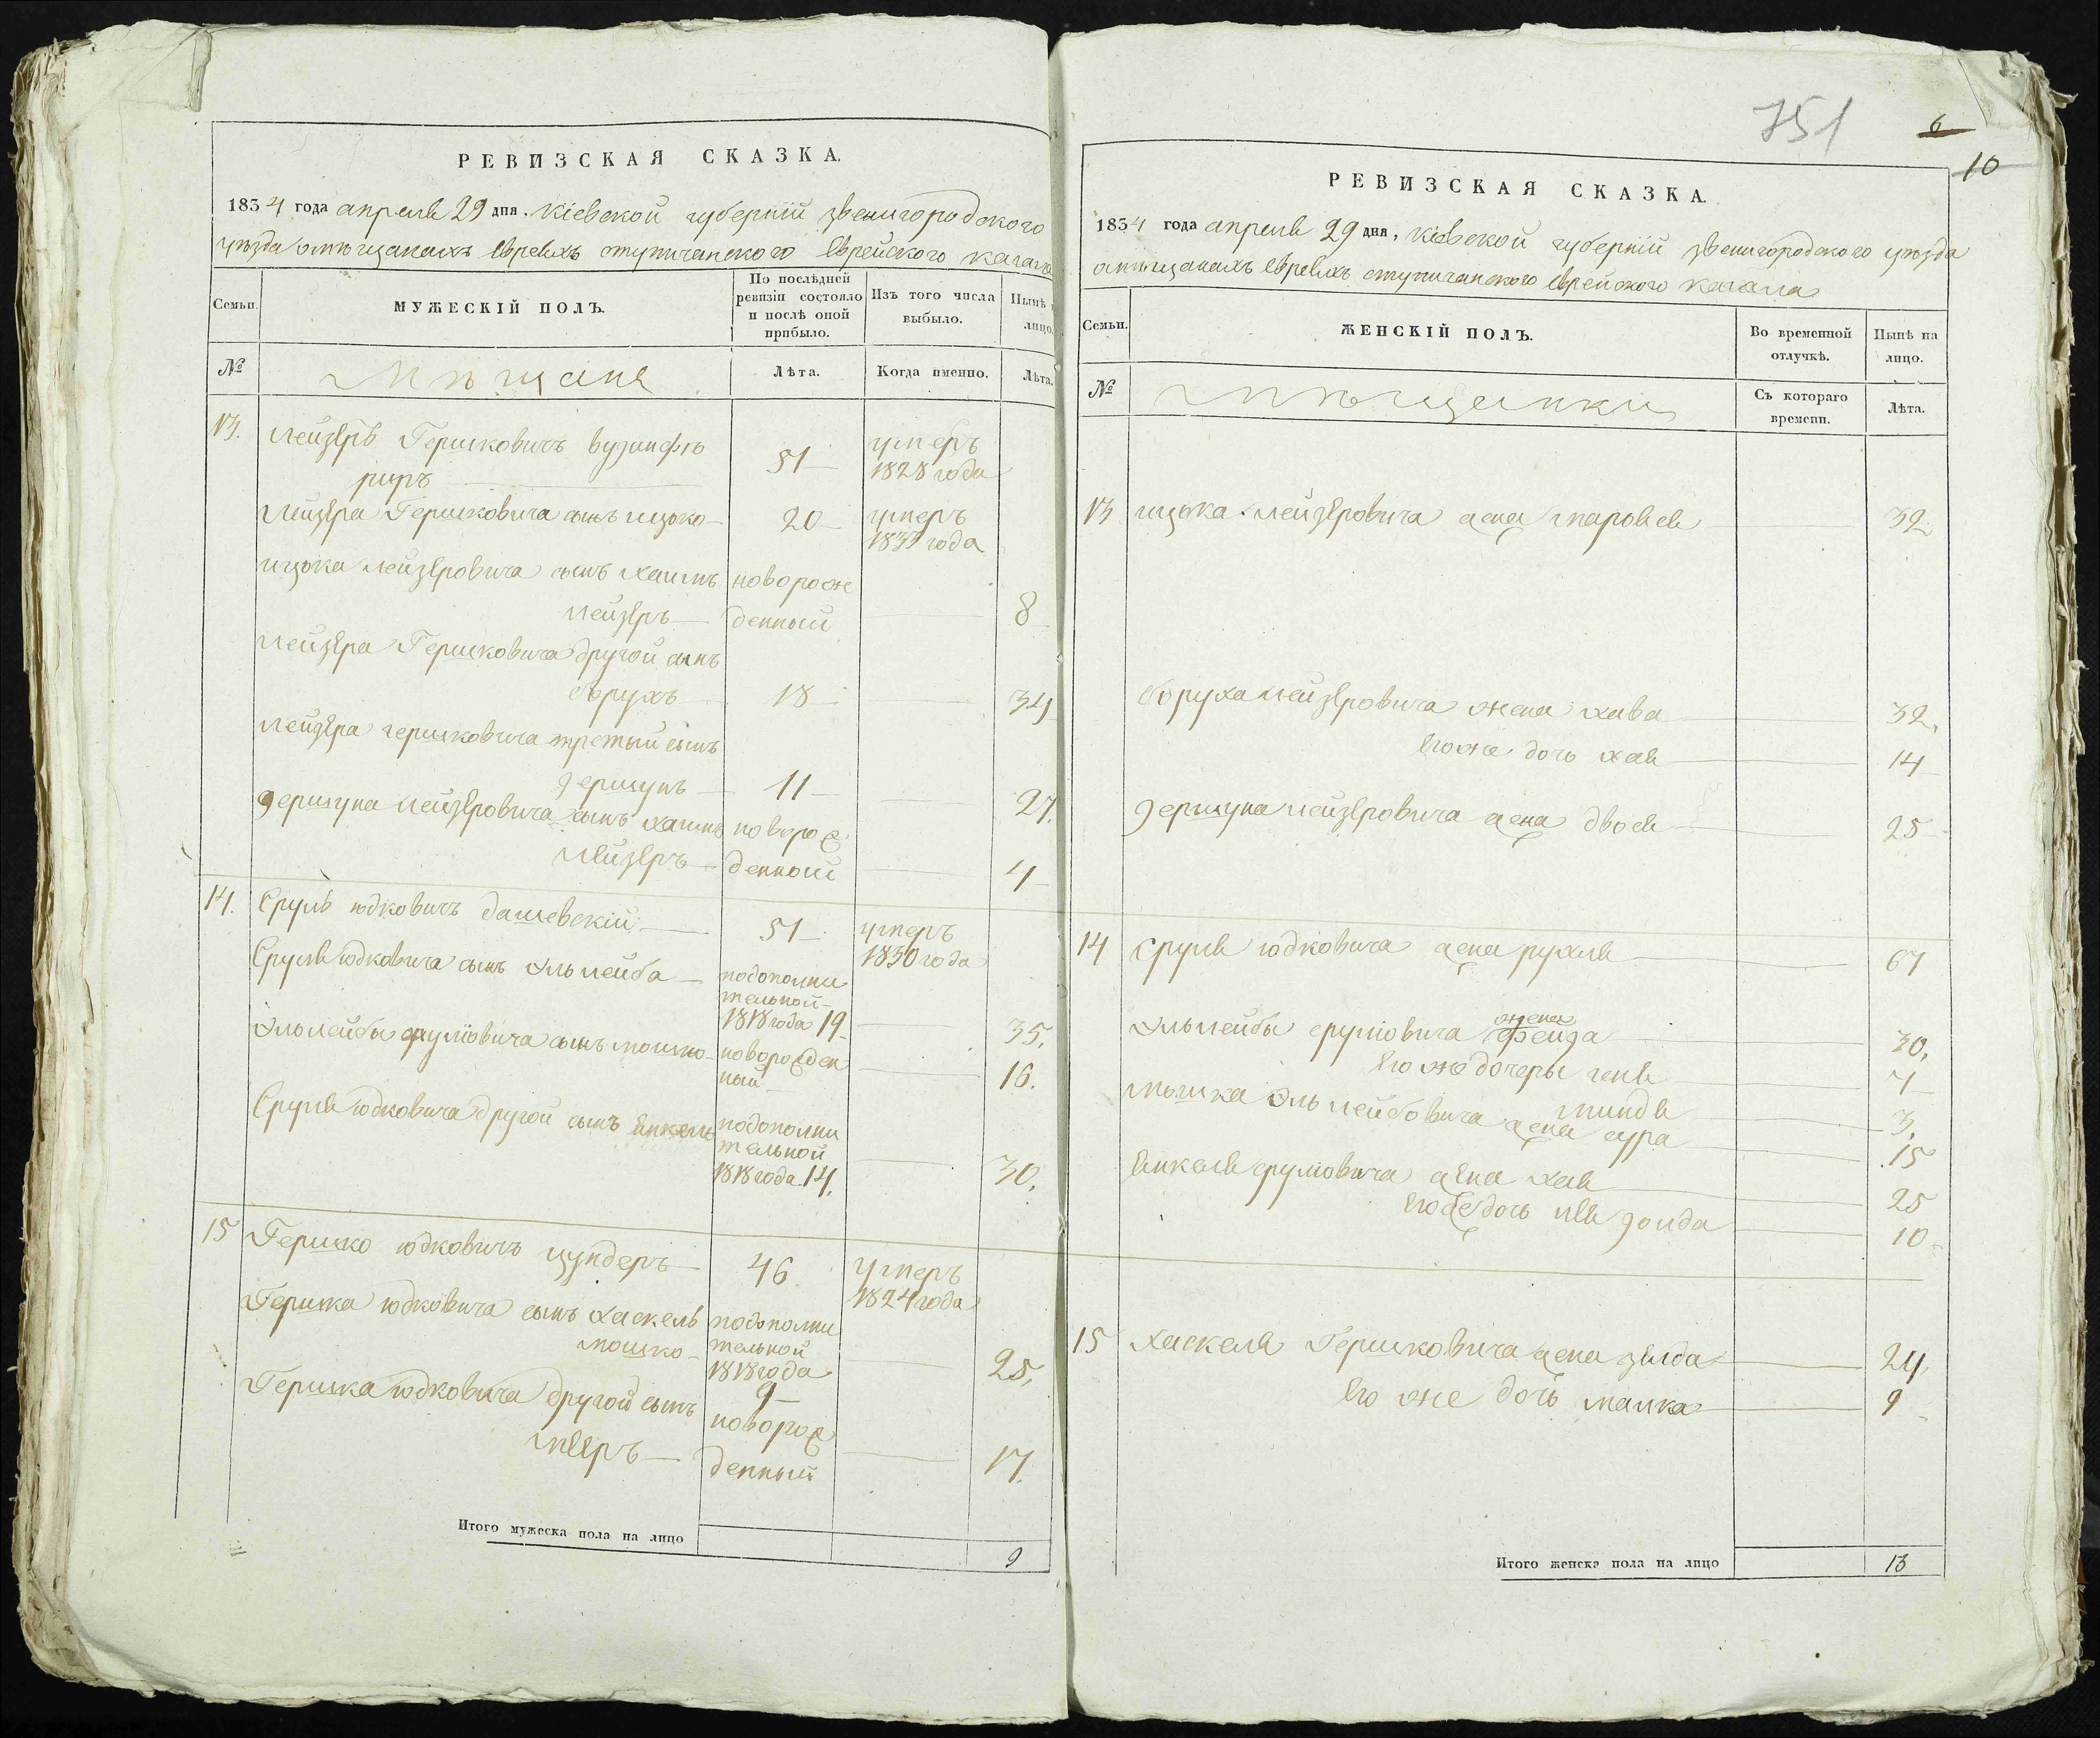 РЕВИЗСКАЯ СКАЗКА.
1834 года апреля 29 дня. Кіевской губерніи звенигородского
уѣзда омѣщанахъ Евреяхъ Еврейского кагала
Семьи.
МУЖЕСКІЙ ПОЛЪ.
По послѣдней ревизіи состояло и послѣ оной прибыло.
Изъ того числа выбыло.
Нынѣ
лицо.
№
Мѣщане
Лѣта.
Когда именно.
Лѣта.
13.
Лейзеръ Гершковичъ
51
умеръ
1828 года
Лейзера Гершковича сынъ ицько
20
умеръ
года
ицька лейзеровича сынъ хаимъ
новорож
лейзеръ
денный
8
Лейзера Гершковича другой сынъ
борухъ
18
34
Лейзера гершковича третый сынъ
гершунъ
11
27.
гершуна лейзеровича сынъ хаимъ
новорож
лейзеръ
денной
4
14.
Сруль юдковичъ дашевскій
51
умеръ
1830 года
Сруля юдковича сынъ Эльлейба
подополни
тельной
1818 года 19
35.
Эльлейбы сруліовича сынъ мошко
новорожден
ный
16.
Сруля юдковича другой сынъ янкель
подополни
тельной
1818 года 14.
30.
15
Гершко юдковичъ цундеръ
46
умеръ
1824 года
Гершка юдковича сынъ хаскель
подополни
мошко
тельной
1818 года
9
25.
Гершка юдковича другой сынъ
новорож
мееръ
денный
17.
Итого мужеска пола на лицо
9
751
6
10
РЕВИЗСКАЯ СКАЗКА.
1834 года апреля 29 дня, Кіевской губерніи Звенигородского уѣзда
омѣщанахъ Евреяхъ Еврейского кагала
Семьи.
ЖЕНСКІЙ ПОЛЪ.
Во временной отлучкѣ.
Нынѣ на лицо.
№
Мѣщанки
Съ котораго времени.
Лѣта.
13
ицька лейзеровича жена
32
боруха лейзеровича жена хава
32.
Егоже дочь хая
14
гершуна лейзеровича жена двося
25
14
Сруля юдковича жена рухля
67
Эльлейбы сруліовича жена фейга
30.
Его же дочеры геня
7
миндя
3.
мошка Эльлейбовича жена сура
15
янкеля сруліовича жена хая
25
Егоже дочь
10
15
Хаскеля Гершковича жена зелда
24.
Его же дочь малка
9
Итого женска пола на лицо
13